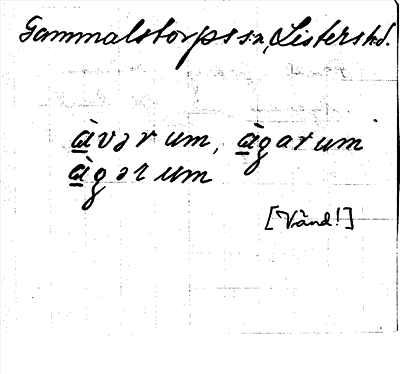 Gammalstorps sn, Listers hd.
à̲vər um, à̲garum
à̲gər um
[Vänd!]